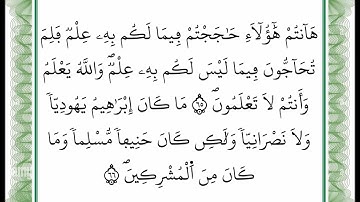 هَـٰٓأَنتُمْ هَـٰٓؤُلَآءِ حَـٰجَجْتُمْ فِيمَا لَكُم بِهِۦ عِلْمٌ فَلِمَ
تُحَآجُّونَ فِيمَا لَيْسَ لَكُم بِهِۦ عِلْمٌ ۚ وَاللَّهُ يَعْلَمُ
وَأَنتُمْ لَا تَعْلَمُونَ ۝٦٥ مَا كَانَ إِبْرَٰهِيمُ يَهُودِيًّا
وَلَا نَصْرَانِيًّا وَلَـٰكِن كَانَ حَنِيفًا مُّسْلِمًا وَمَا
كَانَ مِنَ الْمُشْرِكِينَ ۝٦٦